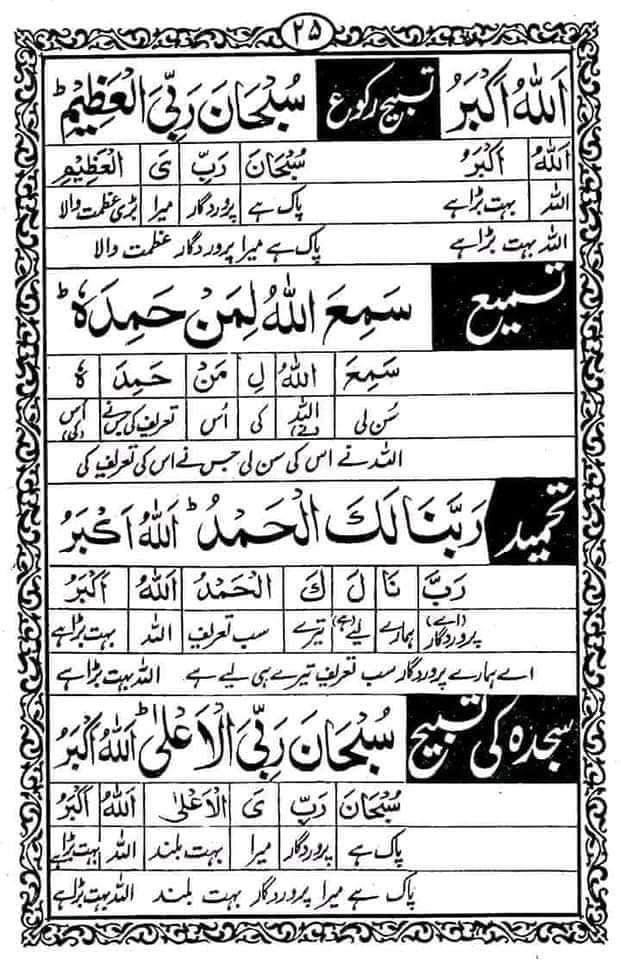 ۲۵
اَللّٰهُ اَكْبَرُ تسبیح رکوع سُبْحَانَ رَبِّیَ الْعَظِیْمِؕ
اَللّٰهُ اَكْبَرُ سُبْحَانَ رَبِّ یَ الْعَظِیْمِ
اللہ بہت بڑا ہے پاک ہے پروردگار میرا بڑی عظمت والا
اللہ بہت بڑا ہے پاک ہے میرا پروردگار عظمت والا
تسمیع سَمِعَ اللّٰهُ لِمَنْ حَمِدَهٗؕ
سَمِعَ اللّٰهُ لِ مَنْ حَمِدَ هٗ
سُن لی اللہ (نے) کی اُس تعریف کی جس نے اُس (کی)
اللہ نے اس کی سن لی جس نے اس کی تعریف کی
تحمید رَبَّنَا لَكَ الْحَمْدُؕ اَللّٰهُ اَكْبَرُ
رَبَّ نَا لَ كَ الْحَمْدُ اَللّٰهُ اَكْبَرُ
(اے) پروردگار ہمارے لیے (ہے) تیرے سب تعریف اللہ بہت بڑا ہے
اے ہمارے پروردگار سب تعریف تیرے ہی لیے ہے اللہ بہت بڑا ہے
سجدہ کی تسبیح سُبْحَانَ رَبِّیَ الْاَعْلٰیؕ اَللّٰهُ اَكْبَرُ
سُبْحَانَ رَبِّ یَ الْاَعْلٰی اَللّٰهُ اَكْبَرُ
پاک ہے پروردگار میرا بہت بلند اللہ بہت بڑا ہے
پاک ہے میرا پروردگار بہت بلند اللہ بہت بڑا ہے